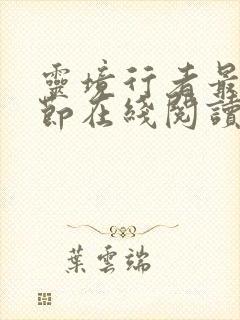 靈境行者最
節在綫閱讀
葉雲端